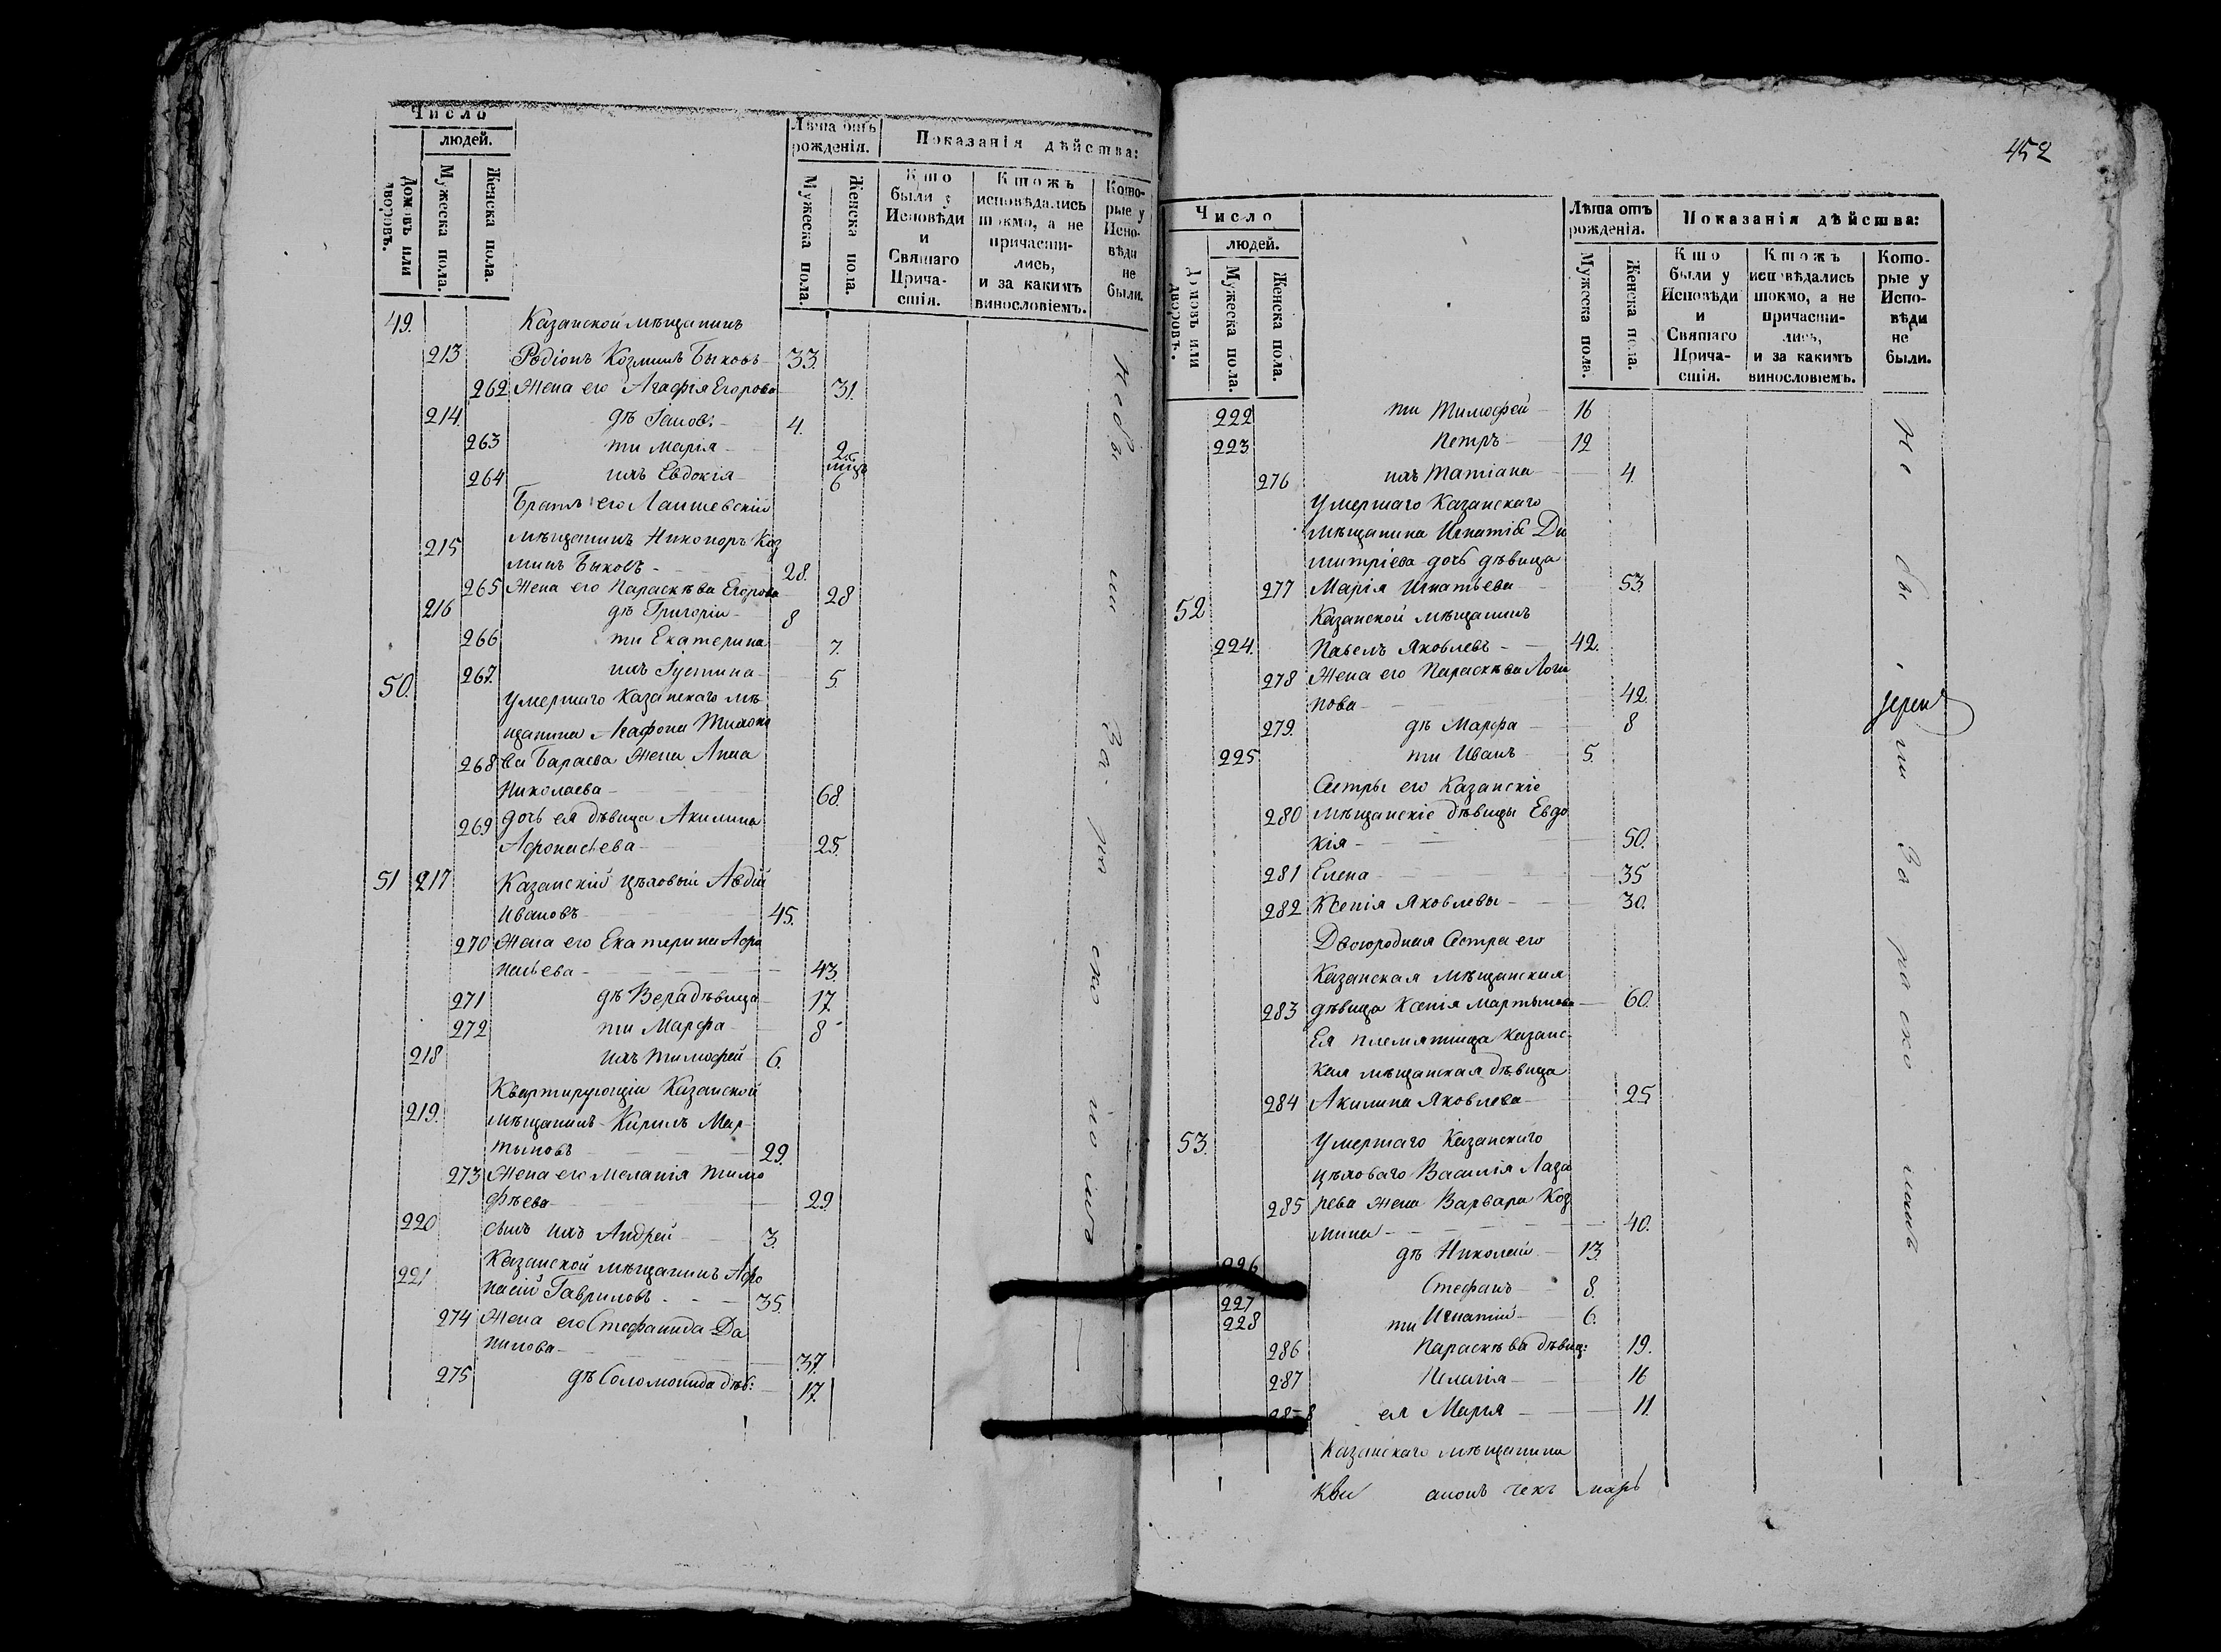 Число
людей.
Домовъ или дворовъ.
Мужеска пола.
Женска пола.
Лѣта отъ рожденія.
Мужеска пола.
Женска пола.
Показанія дѣйства:
Кто были у Исповѣди и Святаго Причастія.
Ктожъ исповѣдались токмо, а не причастились, и за какимъ винословіемъ.
Которые у Исповѣди не были.
49. Казанской мѣщанинъ
213 Родіонъ Козминъ Быковъ 33.
262 Жена его Агафія Егорова 31.
214. дѣ Іаковъ 4.
263 ти Марія 2.
264 ихъ Евдокія мцъ 6
Братъ его Лаишевскій
215 мѣщанинъ Никоноръ Коз
минъ Быковъ 28.
265 Жена его Параскѣва Егорова 28
216 дѣ Григорій 8
266 ти Екатерина 7.
267. ихъ Іустина 5.
50. Умершаго Казанскаго мѣ
щанина Агафона
268 ва Бараева Жена Анна
Николаева 68.
269 дочь ея дѣвица Акилина
Афонасьева 25.
51 217 Казанскій цѣховый Авдій
Ивановъ 45.
270 Жена его Екатерина Афо
насьева 43.
271 дѣ Вера дѣвица 17.
272 ти Марфа 8
218 ихъ Тимофей 6.
Квартирующіи Казанской
219. мѣщанинъ Кирилъ Мар
тыновъ 29.
273 Жена его Меланія Тимо
фѣева 29
220 сынъ ихъ Андрей 3.
221 Казанской мѣщанинъ Афо
насій Гавриловъ 35.
274 Жена его Стефанида Да
нилова 37.
275 дѣ Соломонида дѣв: 17.
Не бы ли За ра ско
452
Число
людей.
Домовъ или дворовъ.
Мужеска пола.
Женска пола.
Лѣта отъ рожденія.
Мужеска пола.
Женска пола.
Показанія дѣйства:
Кто были у Исповѣди и Святаго Причастія.
Ктожъ исповѣдались токмо, а не причастились, и за какимъ винословіемъ.
Которые у Исповѣди не были.
222 ти Тимофей 16
223 Петръ 12
276 ихъ Татіана 4.
Умершаго Казанскаго
мѣщанина Игнатія Ди
митріева дочь дѣвица
277 Марія Игнатьева 53.
52 Казанской мѣщанинъ
224. Павелъ Яковлевъ 42.
278 Жена его Параскѣва Логи
нова 42.
279. дѣ Марфа 8
225 ти Иванъ 5.
Сестры его Казанскіе
280 мѣщанскіе дѣвицы Евдо
кія 50.
281 Елена 35
282 Ксенія Яковлевы 30.
Двоюродная Сестра его
Казанская мѣщанская
283 дѣвица Ксенія Мартынова 60.
Ея племянница Казанс
кая мѣщанская дѣвица
284 Акилина Яковлева 25
53. Умершаго Казанскаго
цѣховаго Василія Лаза
285 рева Жена Варвара Коз
мина 40.
226 дѣ Николай 13.
227 Стефанъ 8.
228 ти Игнатій 6.
286 Параскѣва дѣвиц: 19.
287 Пелагія 16
288 ея Марія 11.
Казанскаго мѣщанина
Не бы ли За ра ско